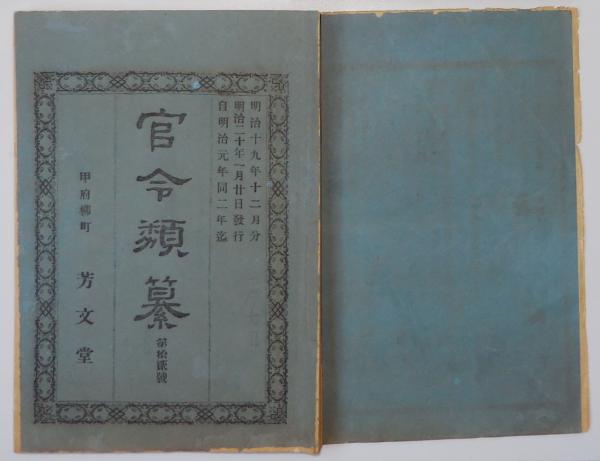 明治十九年十二月分
明治二十年一月廿日發行
自明治元年同二年迄
官令類纂
第拾貳號
甲府柳町
芳文堂